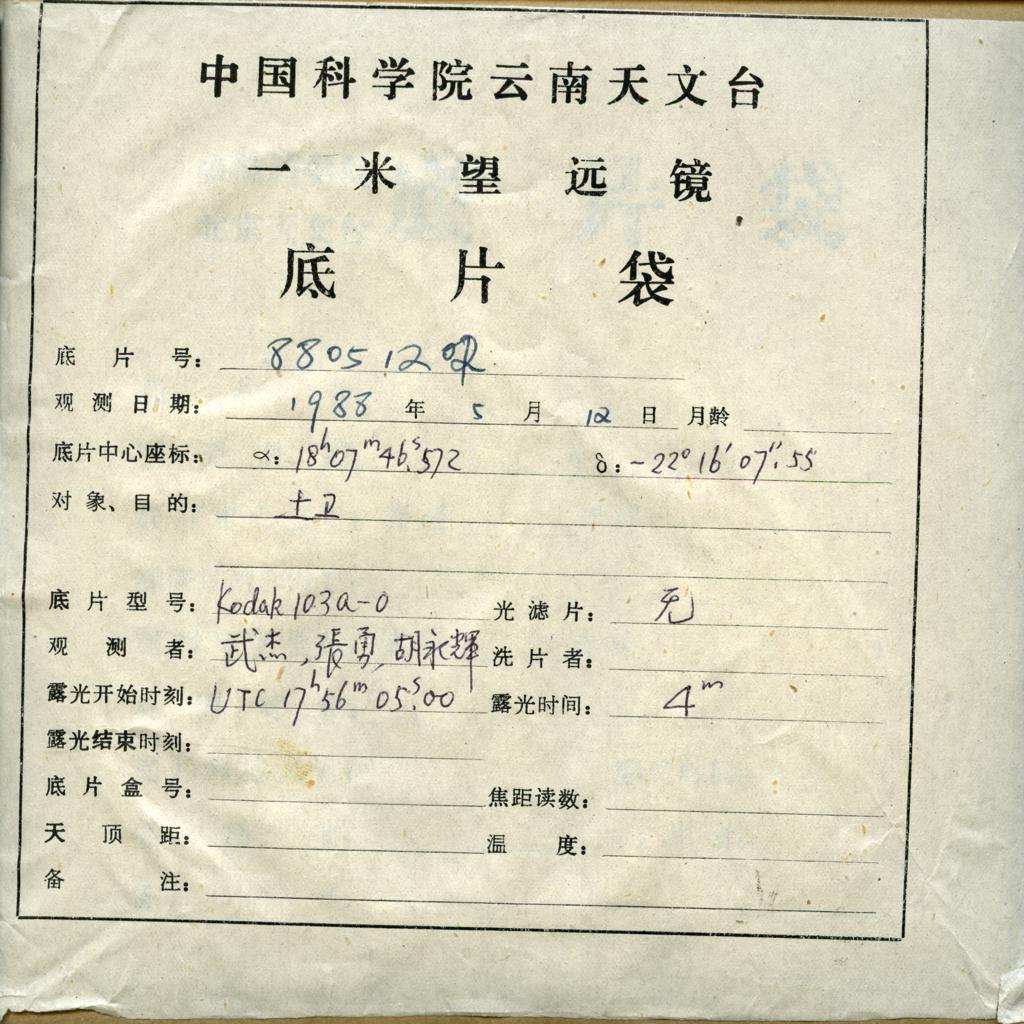 中国科学院云南天文台
一米望远镜
底片袋
底片号: 880512
观测日期: 1988 年 5 月 12 日 月龄
底片中心座标: α: 18h07m46s.572 δ: -22°16′07″.55
对象、目的: 土卫
底片型号: Kodak 103a-O 光滤片: 无
观测者: 武杰, 張勇, 胡永輝 洗片者:
露光开始时刻: UTC 17h56m05s.00 露光时间: 4m
露光结束时刻:
底片盒号: 焦距读数:
天顶距: 温度:
备注: